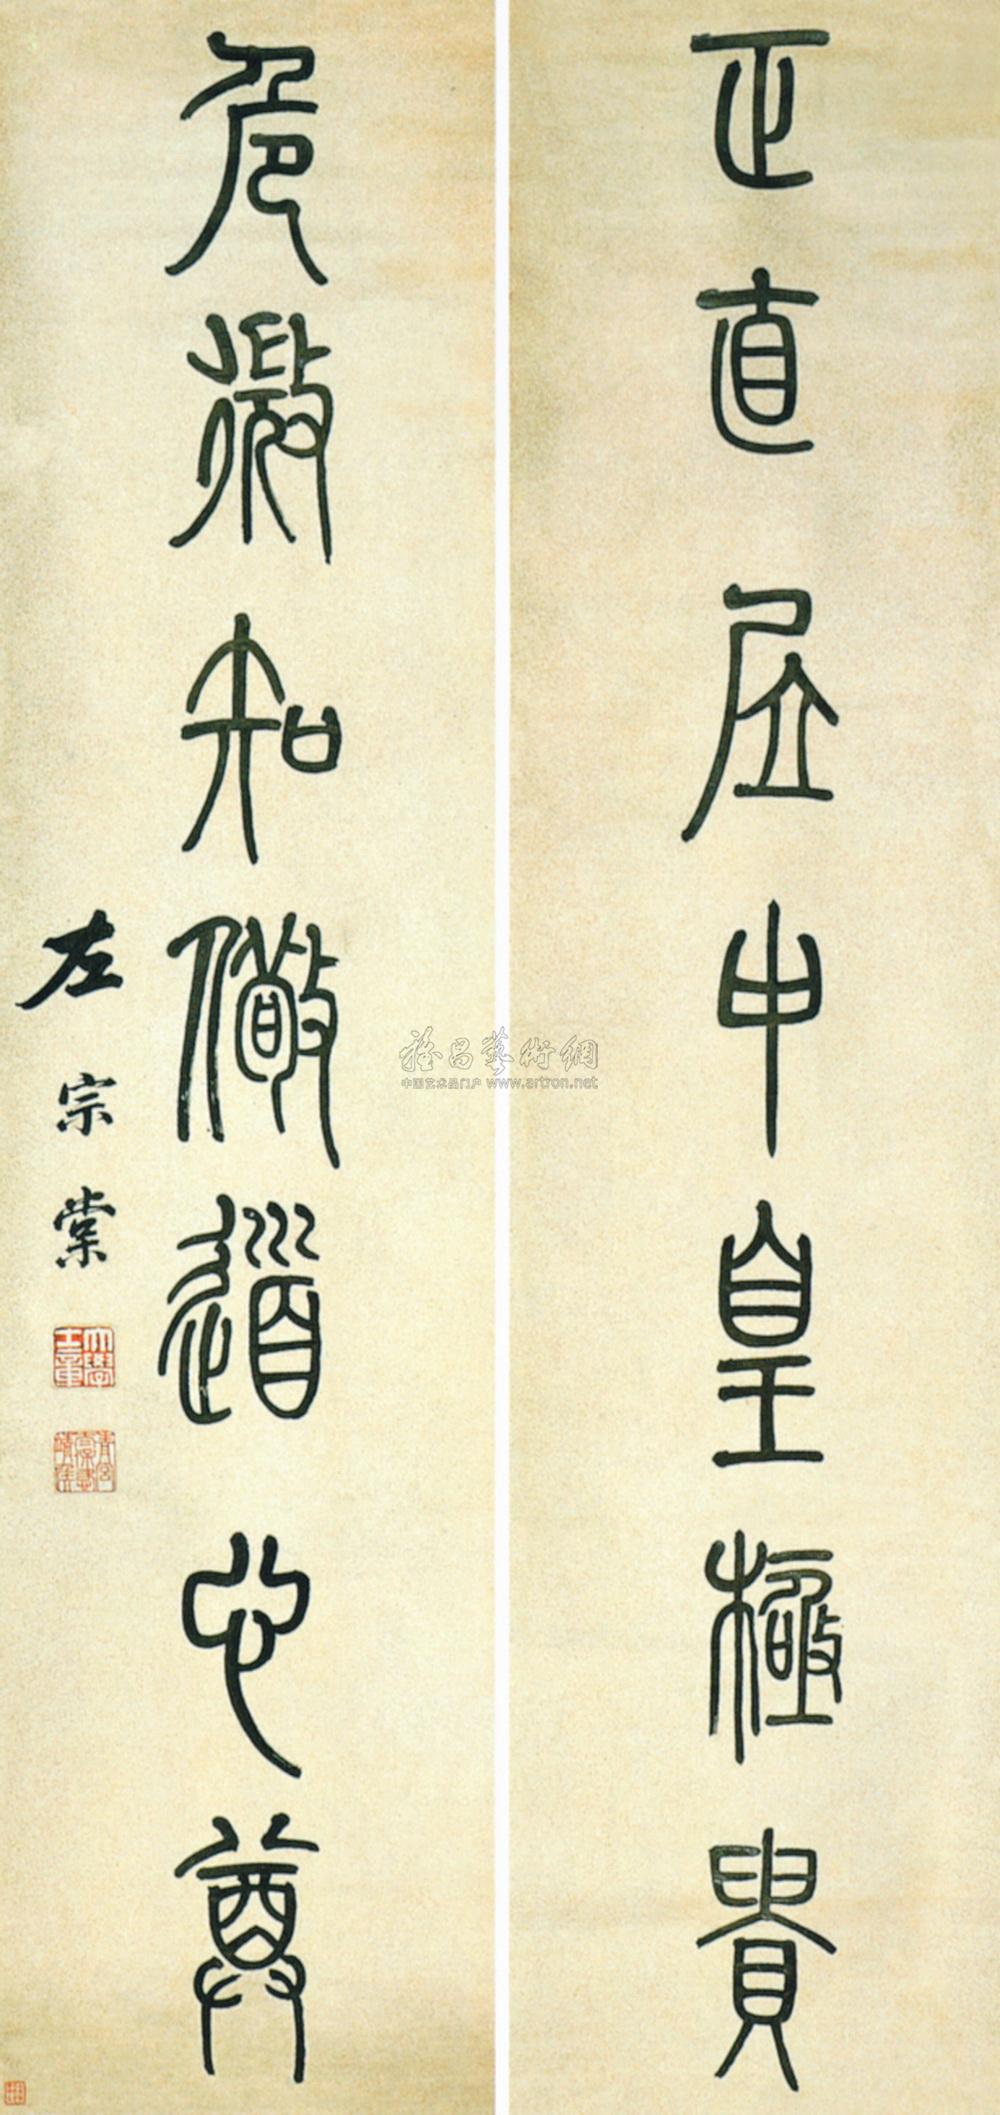 正直居中皇極貴
危微知儆道心尊
左宗棠
大學士章
雅昌藝術網
中国艺术品门户 www.artron.net